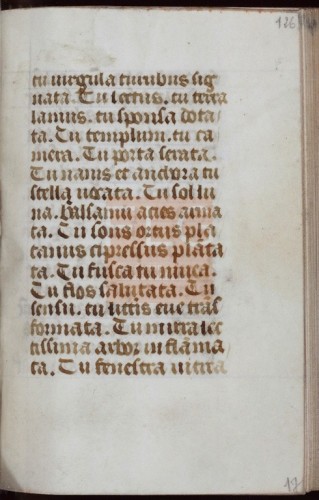 126
tu virgula turibus sig
nata. Tu lectus. tu terra
lamus. tu sponsa dota
ta. Tu templum. tu ca
mera. Tu porta serata.
Tu navis et anchora tu
stella vocata. Tu sol lu
na. balsamū acies arma
ta. Tu fons ortus pla
tanus cipressus plāta
ta. Tu fusca tu nivea.
Tu flos salutata. Tu
sensu. tu lit̄tis eve trās
formata. Tu mitra lec
tissima arbor in flāma
ta. Tu fenestra vitrea
19